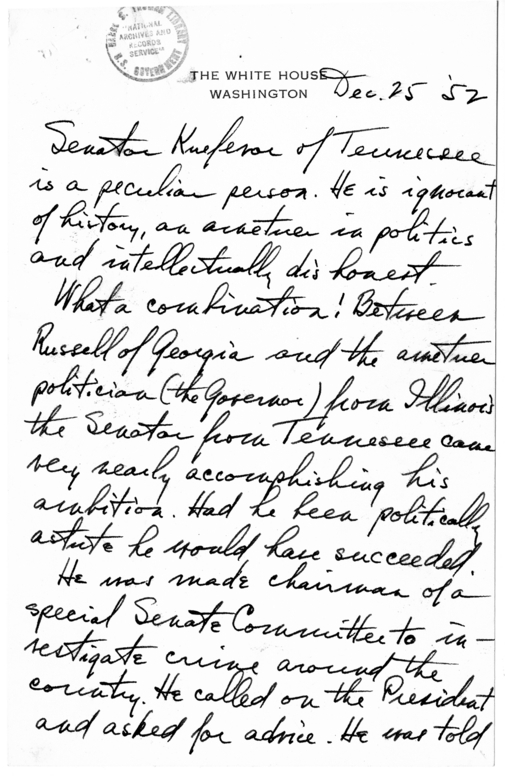 HARRY S. TRUMAN LIBRARY
"NATIONAL
ARCHIVES AND
RECORDS
SERVICE"
U.S. GOVERNMENT
THE WHITE HOUSE
WASHINGTON
Dec. 25 '52
Senator Kuefevor of Tennessee
is a peculiar person. He is ignorant
of history, an ametuer in politics
and intellectually dishonest.
What a combination! Between
Russell of Georgia and the ametuer
politician (the Governor) from Illinois
the Senator from Tennessee came
very nearly accomphishing his
ambition. Had he been politically
astute he would have succeeded
He was made chairman of a
special Senate Committee to in-
vestigate crime around the
country. He called on the President
and asked for advice. He was told